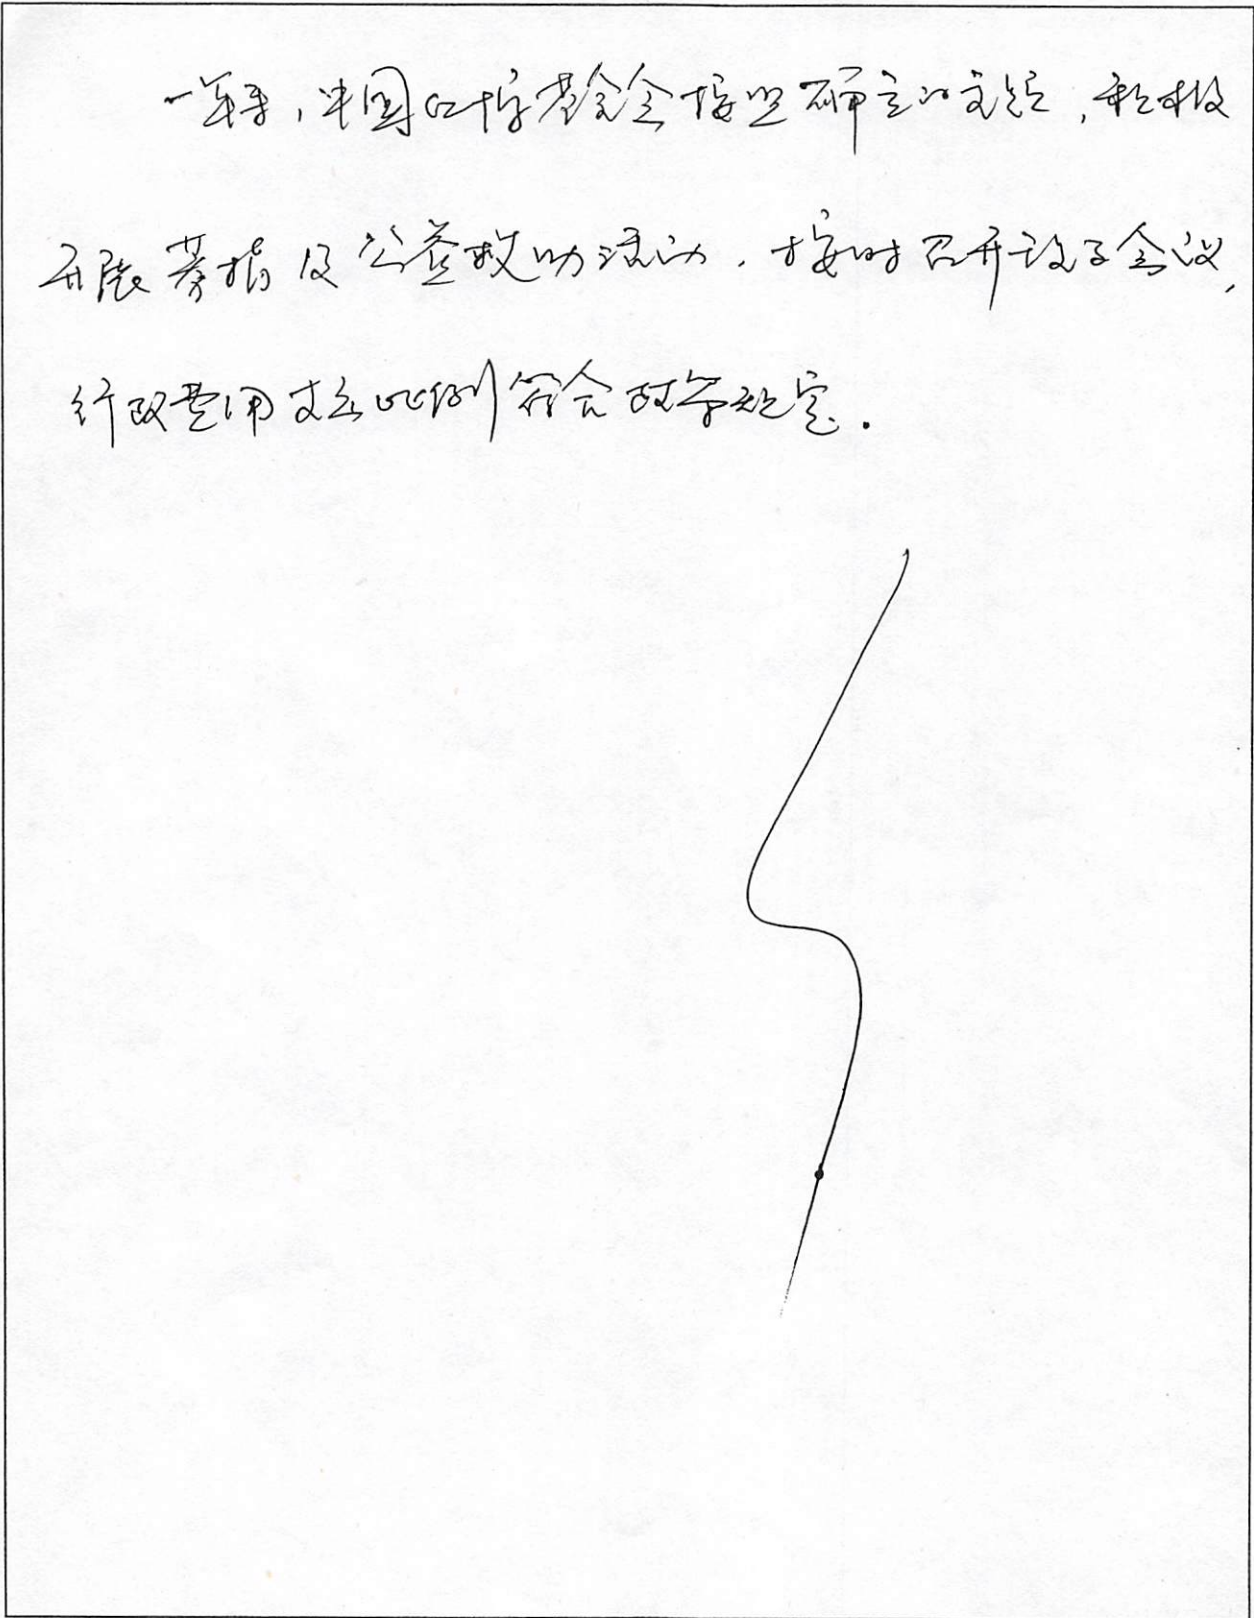 一年来，中国红十字基金会按照确定的主题，积极
开展募捐及公益救助活动，按时召开理事会议，
行政费用支出比例符合政策规定．